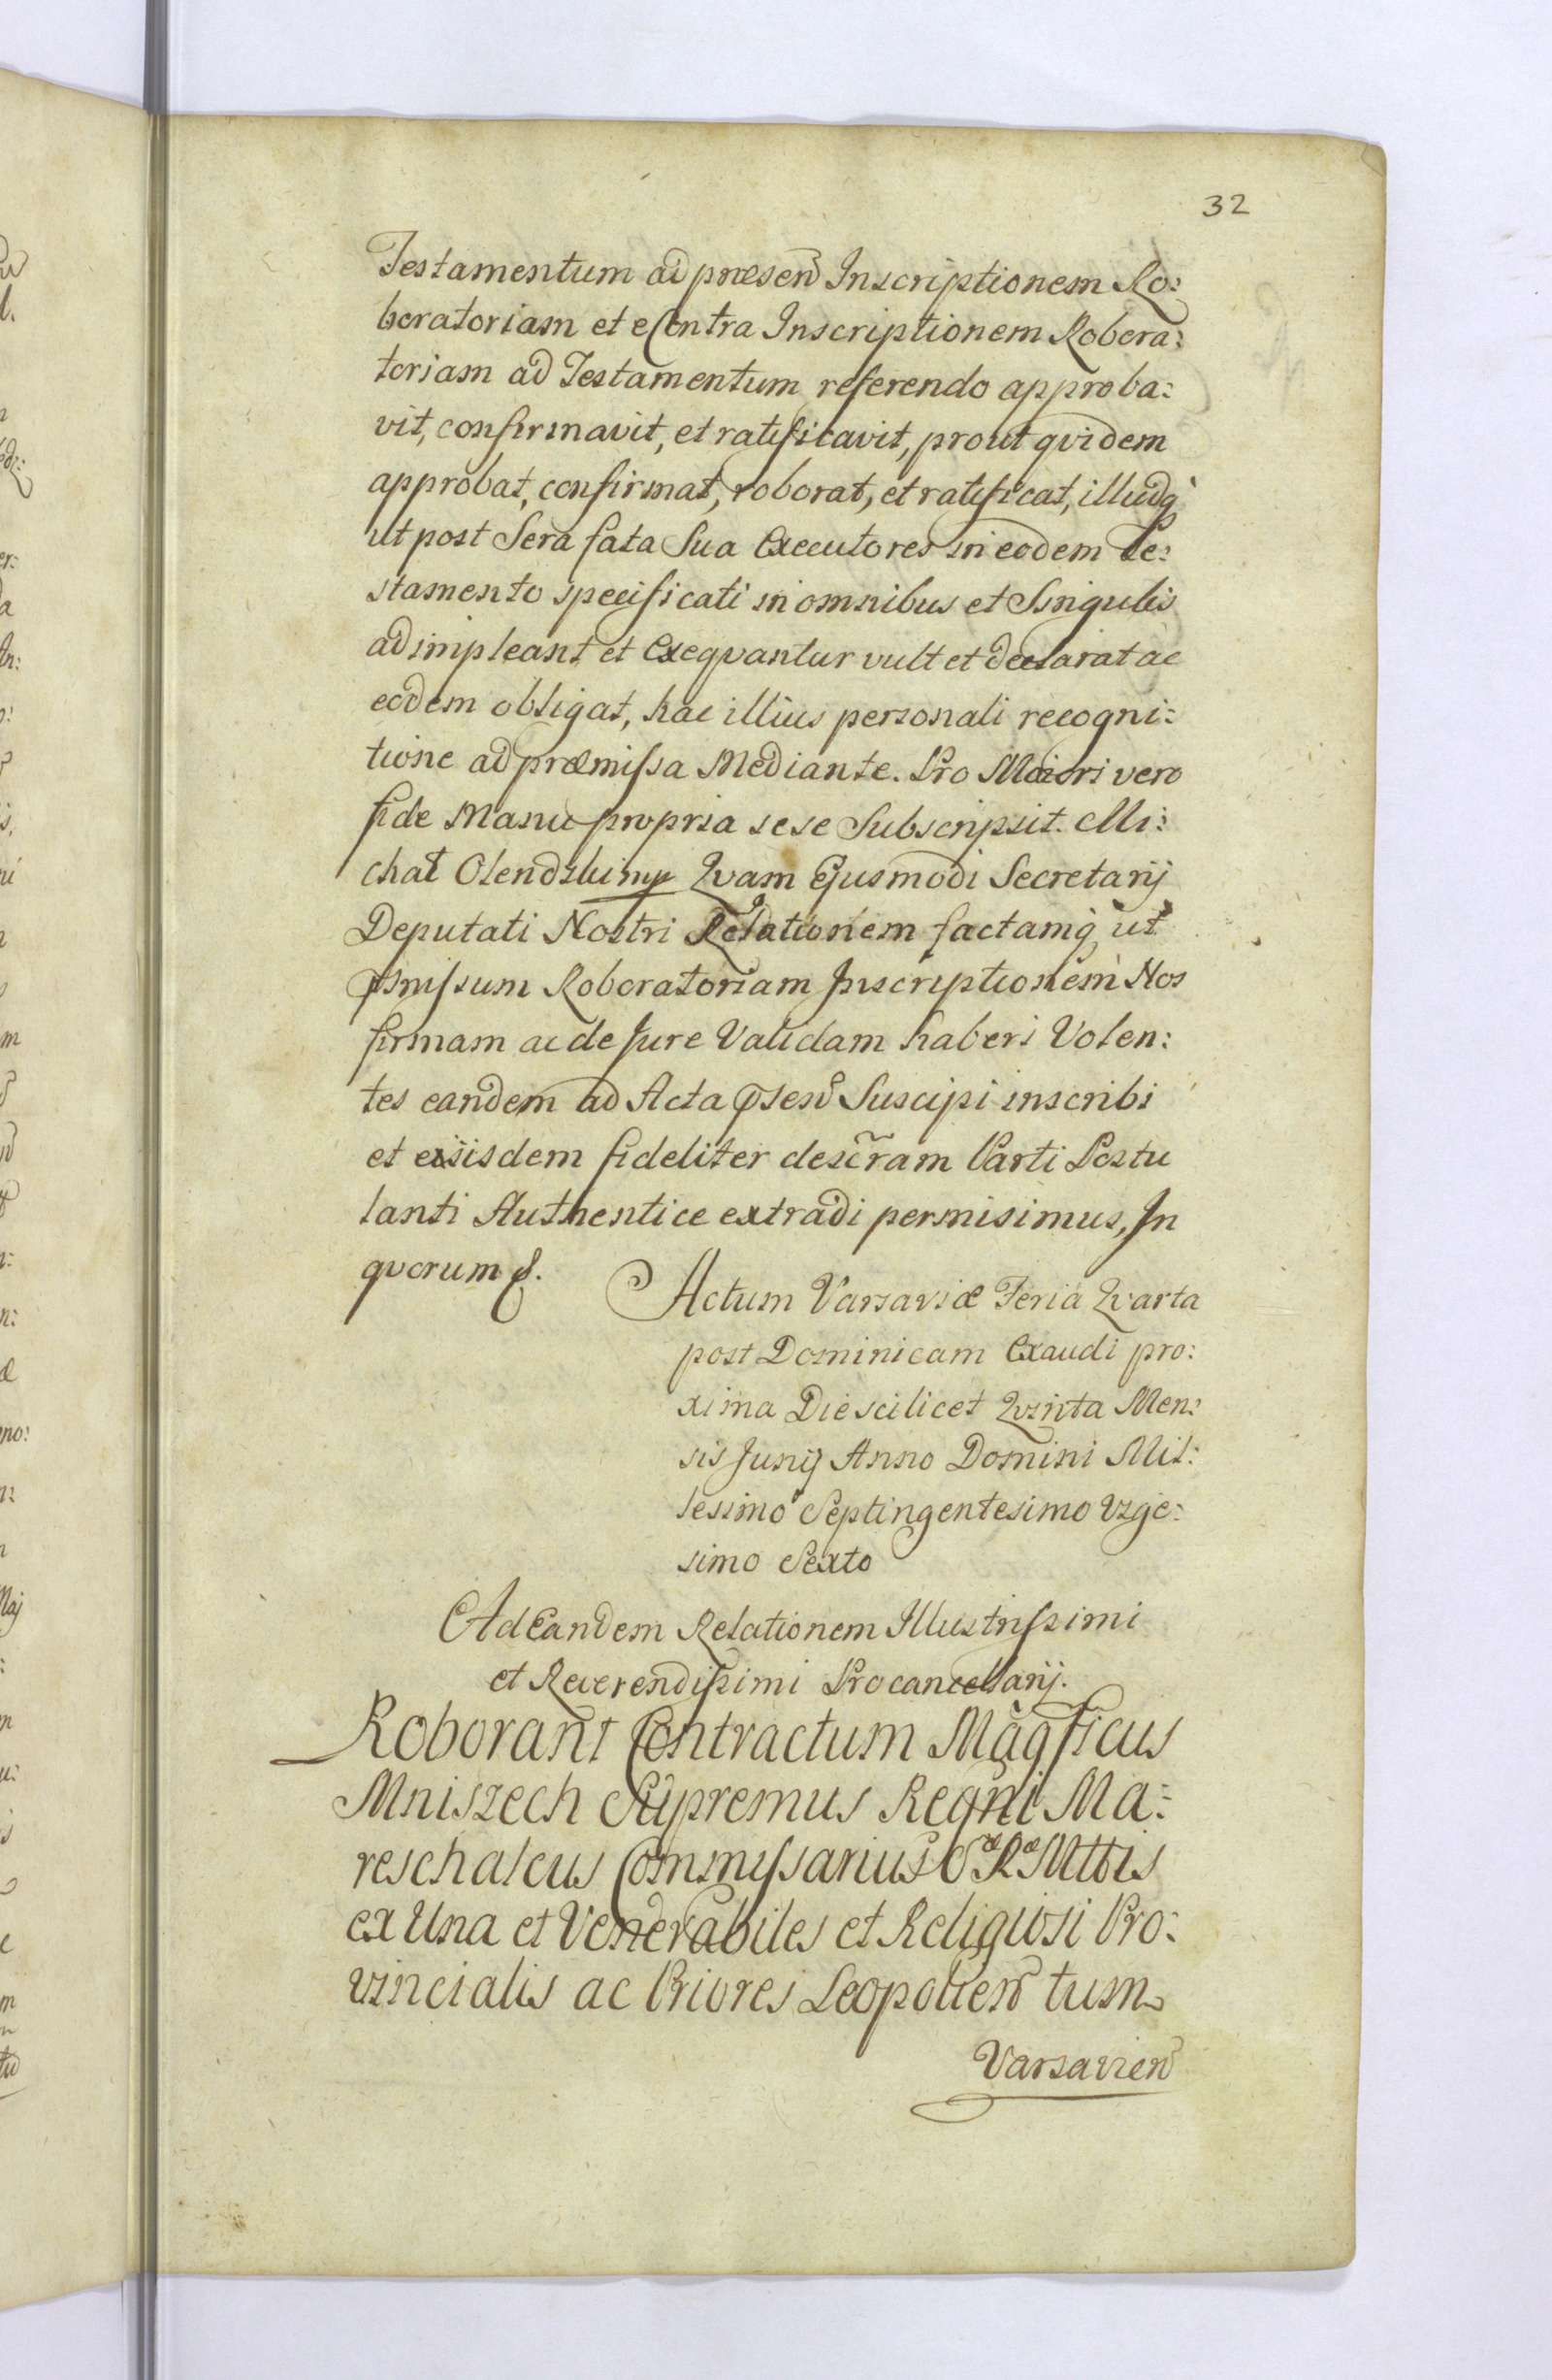 32
Testamentum ad præsen Inscriptionem Ro:
boratoriam et eContra Inscriptionem Robora:
toriam ad Testamentum referendo approba:
vit, confirmavit, et ratificavit, prout qvidem
approbat, confirmat, roborat, et ratificat, illudq
ut post Sera fata Sua Executores in eodem Te:
stamento specificati in omnibus et Singulis
adimpleant et Exeqvantur vult et declarat ac
eodem obligat, hac illius personali recogni:
tione ad præmissa Mediante. Pro Maiori vero
fide Manu propria sese Subscripsit. Mi:
chał Olendzki mp Qvam Ejusmodi Secretarij
Deputati Nostri Relationem factamq ut
pmissum Roboratoriam Inscriptionem Nos
firmam ac de Jure Validam haberi Volen:
tes eandem ad Acta psen Suscipi inscribi
et exijsdem fideliter descram Parti Postu
lanti Authentice extradi permisimus, In
qvorum &.
Actum Varsaviæ Feria Qvarta
post Dominicam Exaudi pro:
xima Die scilicet Qvinta Men:
sis Junij Anno Domini Mil:
lesimo Septingentesimo Vige:
simo Sexto
Ad Eandem Relationem Illustrissimi
et Reverendissimi Procancellarij.
Roborant Contractum Magficus
Mniszech Supremus Regni Ma:
reschalcus Commissarius Sæ Ræ Mttis
ex Una et Venerabiles et Religiosi Pro:
vincialis ac Priores Leopolien tum
Varsavien